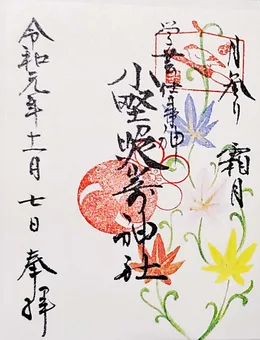 月参り
霜月
学芸仕事神
小野照崎神社
令和元年十一月七日 奉拝